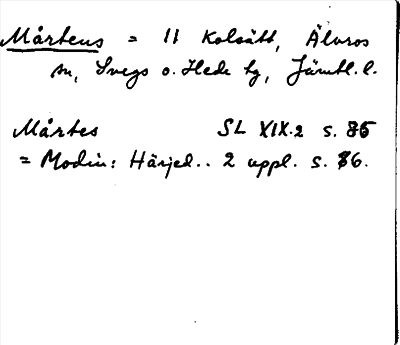 Mårtens = 11 Kolsätt, Älvros
sn, Svegs o. Hede tg, Jämtl. l.
Mårtes SL XIX.2 s. 85
= Modin: Härjed.. 2 uppl. s. 86.